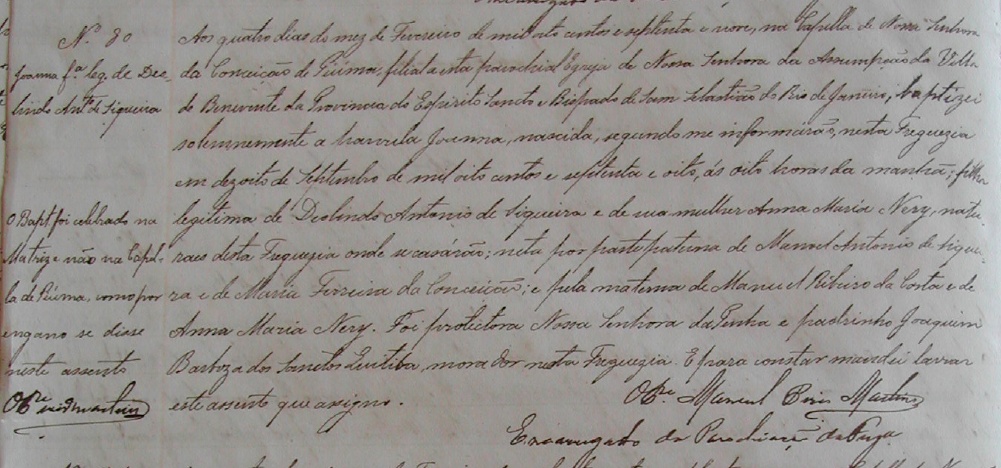 Nº 80
Joanna fª leg. de Deo-
lindo Antº de Siqueira
O Bapt. foi celebrado na
Matriz e não na Capel-
la de Piúma, como por
engano se disse
neste assento
Aos quatro dias do mez de Fevereiro de mil oito centos e septenta e nove, na Capella de Nossa Senhora
da Conceição de Piúma, filial a esta parochial Egreja de Nossa Senhora da Assumpção da Villa
de Benevente da Provincia do Espirito Sancto e Bispado de Sam Sebastião do Rio de Janeiro, baptizei
solemnemente a parvula Joanna, nascida, segundo me informarão, nesta Freguezia
em dezoito de Septembro de mil oito centos e septenta e oito, ás oito horas da manhã; filha
legitima de Deolindo Antonio de Siqueira e de sua mulher Anna Maria Nery, natu-
raes desta Freguezia onde se casárão; neta por parte paterna de Manoel Antonio de Siquei-
ra e de Maria Ferreira da Conceição; e pela materna de Manuel Ribeiro da Costa e de
Anna Maria Nery. Foi protectora Nossa Senhora da Penha e padrinho Joaquim
Barboza dos Sanctos, morador nesta Freguezia. E para constar mandei lavrar
este assento que assigno.
O Pe. Manuel Pires Martins
Encarregado da Parochia